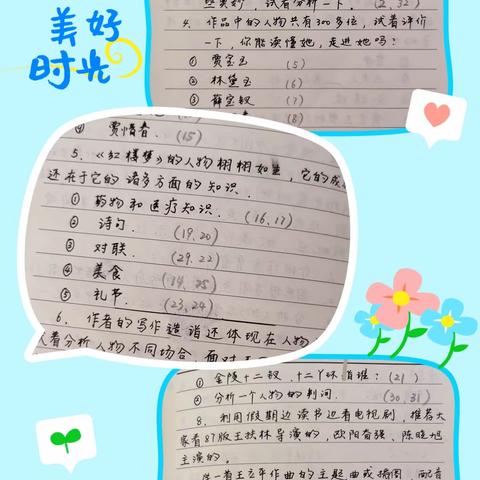 美好
时光
些奥妙，试着分析一下。(2、32)
4. 作品中的人物共有300多位，试着评价
一下，你能读懂她，走进她吗？
① 贾宝玉 (5)
② 林黛玉 (6)
③ 薛宝钗 (7)
(8)
贾惜春. (15)
5. 《红楼梦》的人物栩栩如生，它的成
还在于它的诸多方面的知识.
① 药物和医疗知识. (16、17)
② 诗句. (19、20)
③ 对联. (29、22)
④ 美食 (14、25)
⑤ 礼节. (23、24)
6. 作者的写作造诣还体现在人物
着分析人物不同场合、面对
① 金陵十二钗、十二丫环有谁：(21)
② 分析一个人物的判词. (30、31)
8. 利用假期边读书边看电视剧，推荐大
家看87版王扶林导演的，欧阳奋强、陈晓旭
主演的。
选一着王立平作曲的主题曲或插图，配着